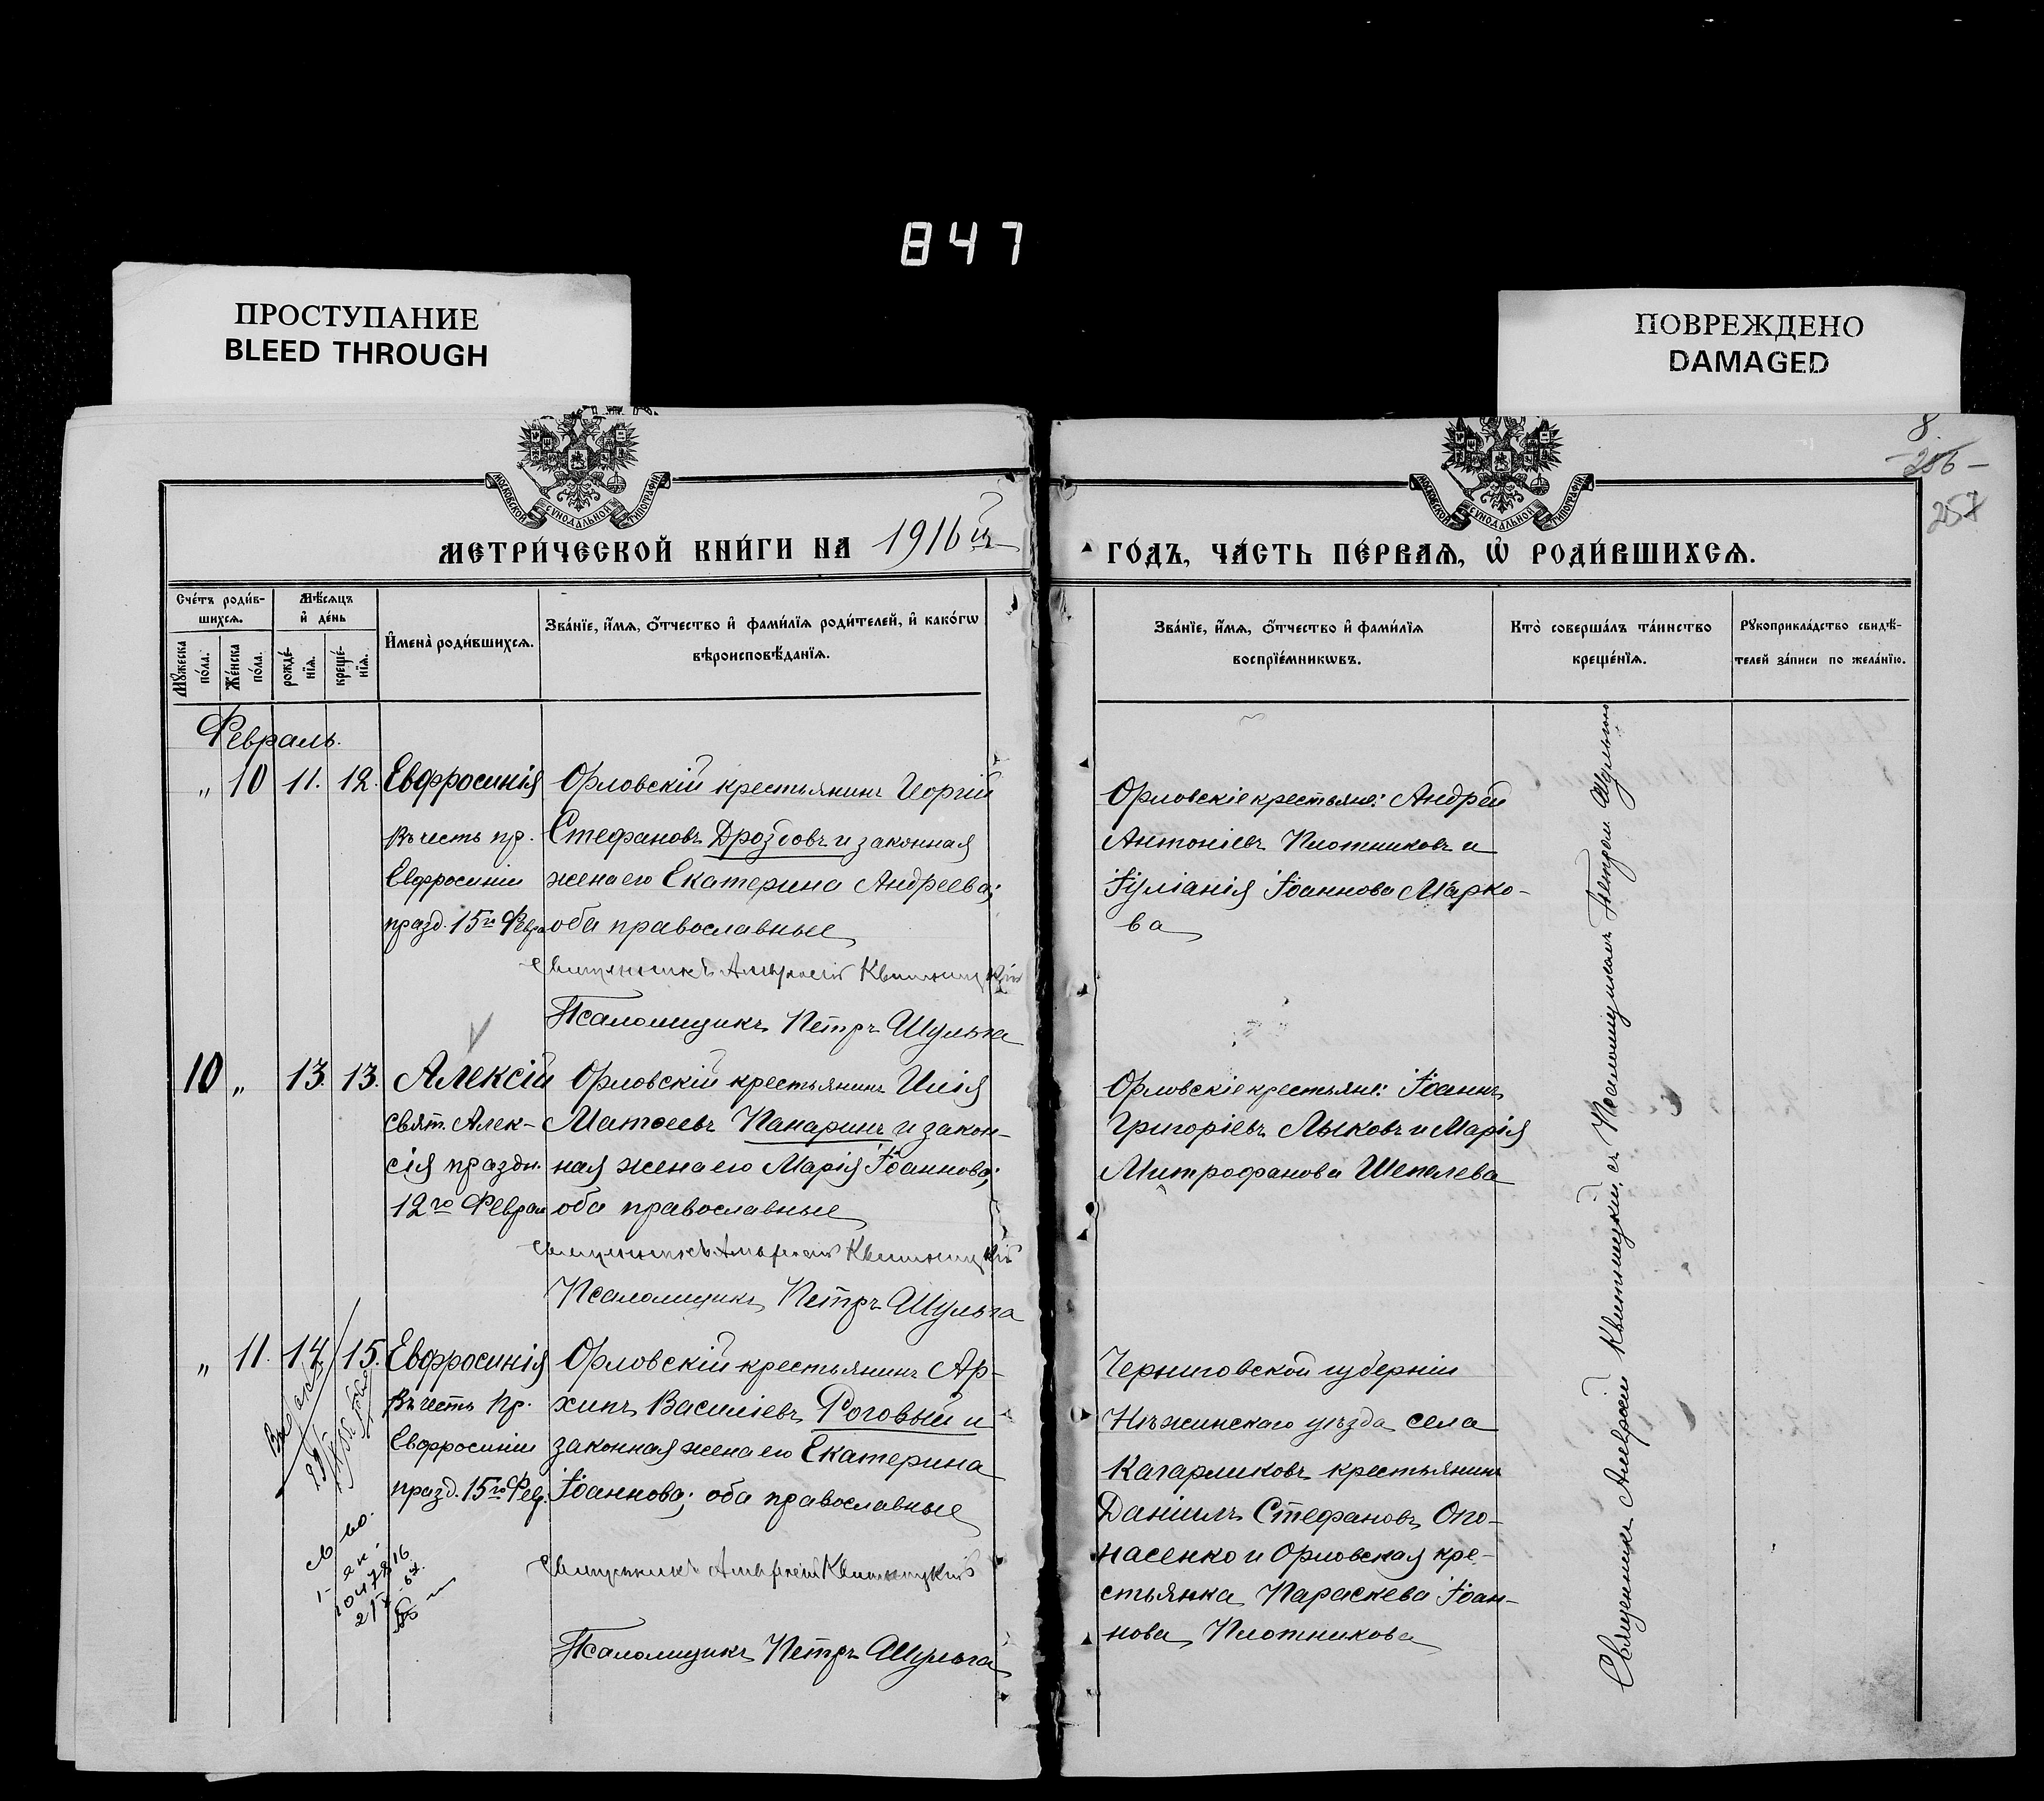 847
ПРОСТУПАНИЕ
BLEED THROUGH
ПОВРЕЖДЕНО
DAMAGED
МОСКОВСКОЙ СѴНОДАЛЬНОЙ ТИПОГРАФІИ
МОСКОВСКОЙ СѴНОДАЛЬНОЙ ТИПОГРАФІИ
8.
-256-
257
МЕТРИ́ЧЕСКОЙ КНИ́ГИ НА 1916й
ГО́ДЪ, ЧА́СТЬ ПЕ́РВАѦ, Ѡ҆ РОДИ́ВШИХСѦ.
Сче́тъ роди́в-
шихсѧ.
Мꙋжеска по́ла.
Же́нска по́ла.
Мѣ́сѧцъ
и҆ де́нь
рожде́-
нїѧ.
креще́-
нїѧ.
И҆мена̀ роди́вшихсѧ.
Зва́нїе, и҆́мѧ, ѻ҆́тчество и҆ фами́лїѧ роди́телей, и҆ како́гѡ
вѣроисповѣ́данїѧ.
Зва́нїе, и҆́мѧ, ѻ҆́тчество и҆ фами́лїѧ
воспрїе́мникѡвъ.
Кто̀ соверша́лъ та́инство
креще́нїѧ.
Рꙋкоприкла́дство свидѣ́-
телей за́писи по жела́нїю.
Февраль.
„ 10 11. 12. Евфросинія
Въ честь пр.
Евфросиніи
празд. 15го Февра
Орловскій крестьянинъ Георгій
Стефановъ Дроздовъ и законная
жена его Екатерина Андреева;
оба православные
Священникъ Амвросій Квитницкій
Псаломщикъ Петръ Шульга
Орловскіе крестьяне: Андрей
Антоніевъ Плотниковъ и
Іуліанія Іоаннова Марко-
ва
10 „ 13. 13. Алексій
Свят. Алек-
сія праздн.
12го Феврал
Орловскій крестьянинъ Илія
Матѳеевъ Панаринъ и закон-
ная жена его Марія Іоаннова;
оба православные
Священникъ Амвросій Квитницкій
Псаломщикъ Петръ Шульга
Орловскіе крестьяне: Іоаннъ
Григоріевъ Лыковъ и Марія
Митрофанова Шепелева
„ 11. 14 15. Евфросинія
Въ честь Пр.
Евфросиніи
празд. 15го Фев.
Орловскій крестьянинъ Ар-
хипъ Василіевъ Роговый и
законная жена его Екатерина
Іоаннова; оба православные
Священникъ Амвросій Квитницкій
Псаломщикъ Петръ Шульга
Черниговской губерніи
Нѣжинскаго уѣзда села
Кагарликовъ крестьянинъ
Даніилъ Стефановъ Опо-
насенко и Орловская кре-
стьянка Параскева Іоан-
нова Плотникова
Священникъ Амвросій Квитницкій съ Псаломщикомъ Петромъ Шульгою